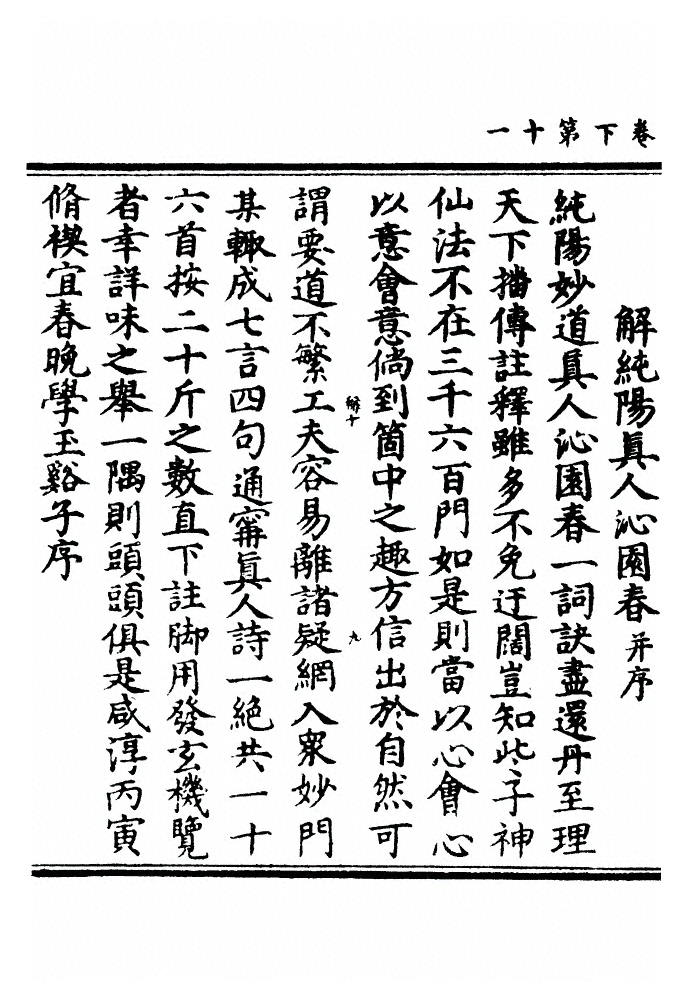 卷下第十一
解純陽眞人沁園春并序
純陽妙道眞人沁園春一詞訣盡還丹至理
天下播傳註釋雖多不免迂闊豈知此子神
仙法不在三千六百門如是則當以心會心
以意會意倘到箇中之趣方信出於自然可
解十
九
謂要道不繁工夫容易離諸疑網入衆妙門
某輙成七言四句通寗眞人詩一絕共一十
六首按二十斤之數直下註脚用發玄機覽
者幸詳味之舉一隅則頭頭俱是咸淳丙寅
脩禊宜春晚學玉谿子序